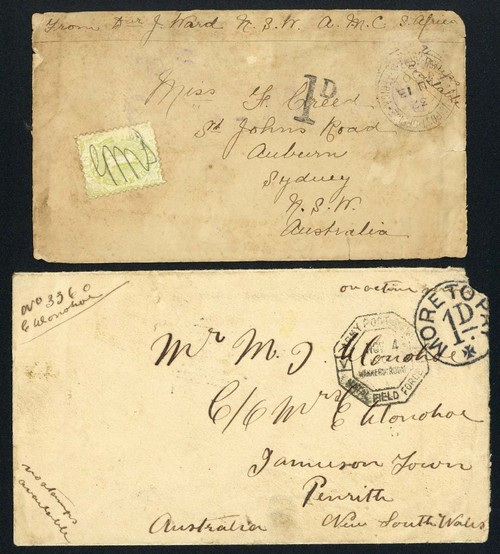 From Dvr J. Ward N.S.W. A.M.C. S. Africa
no stamps
available
1D
Miss F. Creed
St Johns Road
Auburn
Sydney
N.S.W.
Australia
No 3360
on active
MORE TO PAY
1D
ARMY POST
4
NATAL FIELD FORCE
Mr M. J.
C/o Mrs E
Jamieson Town
Penrith
Australia New South Wales
no stamps
available